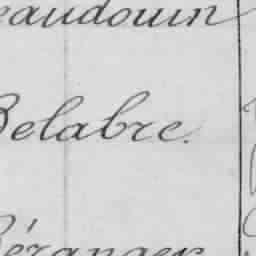 eaudouin
Belabre.
Béranger